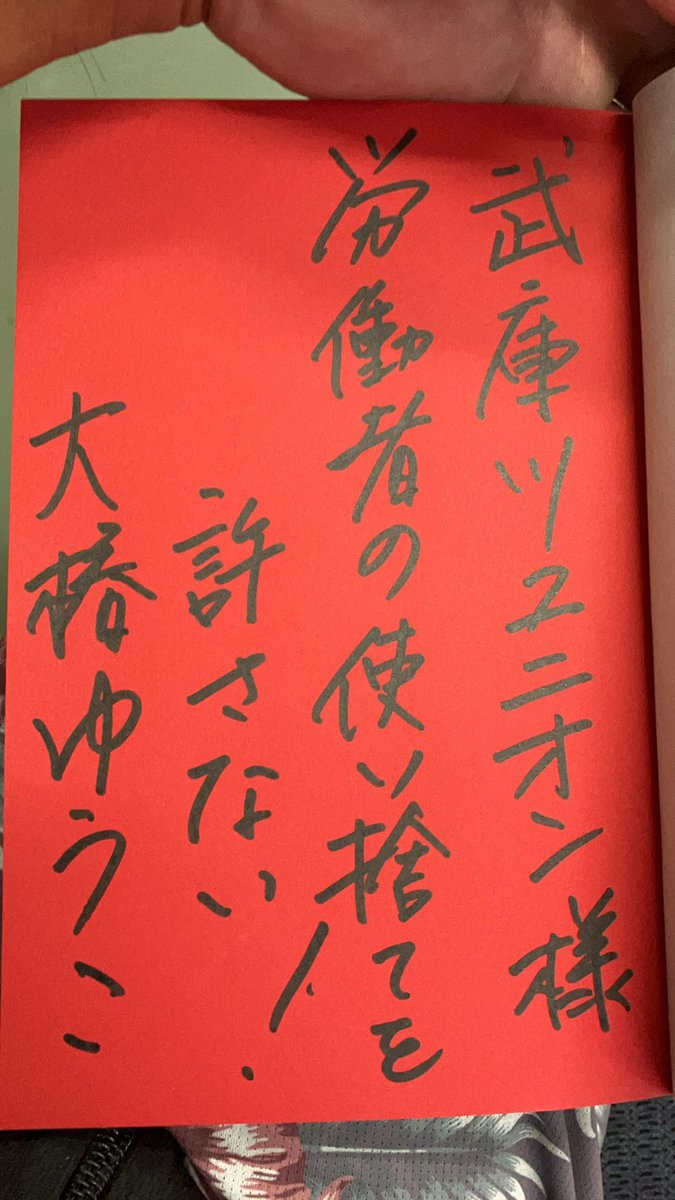 武庫川ユニオン様
労働者の使い捨てを
許さない!
大椿ゆうこ